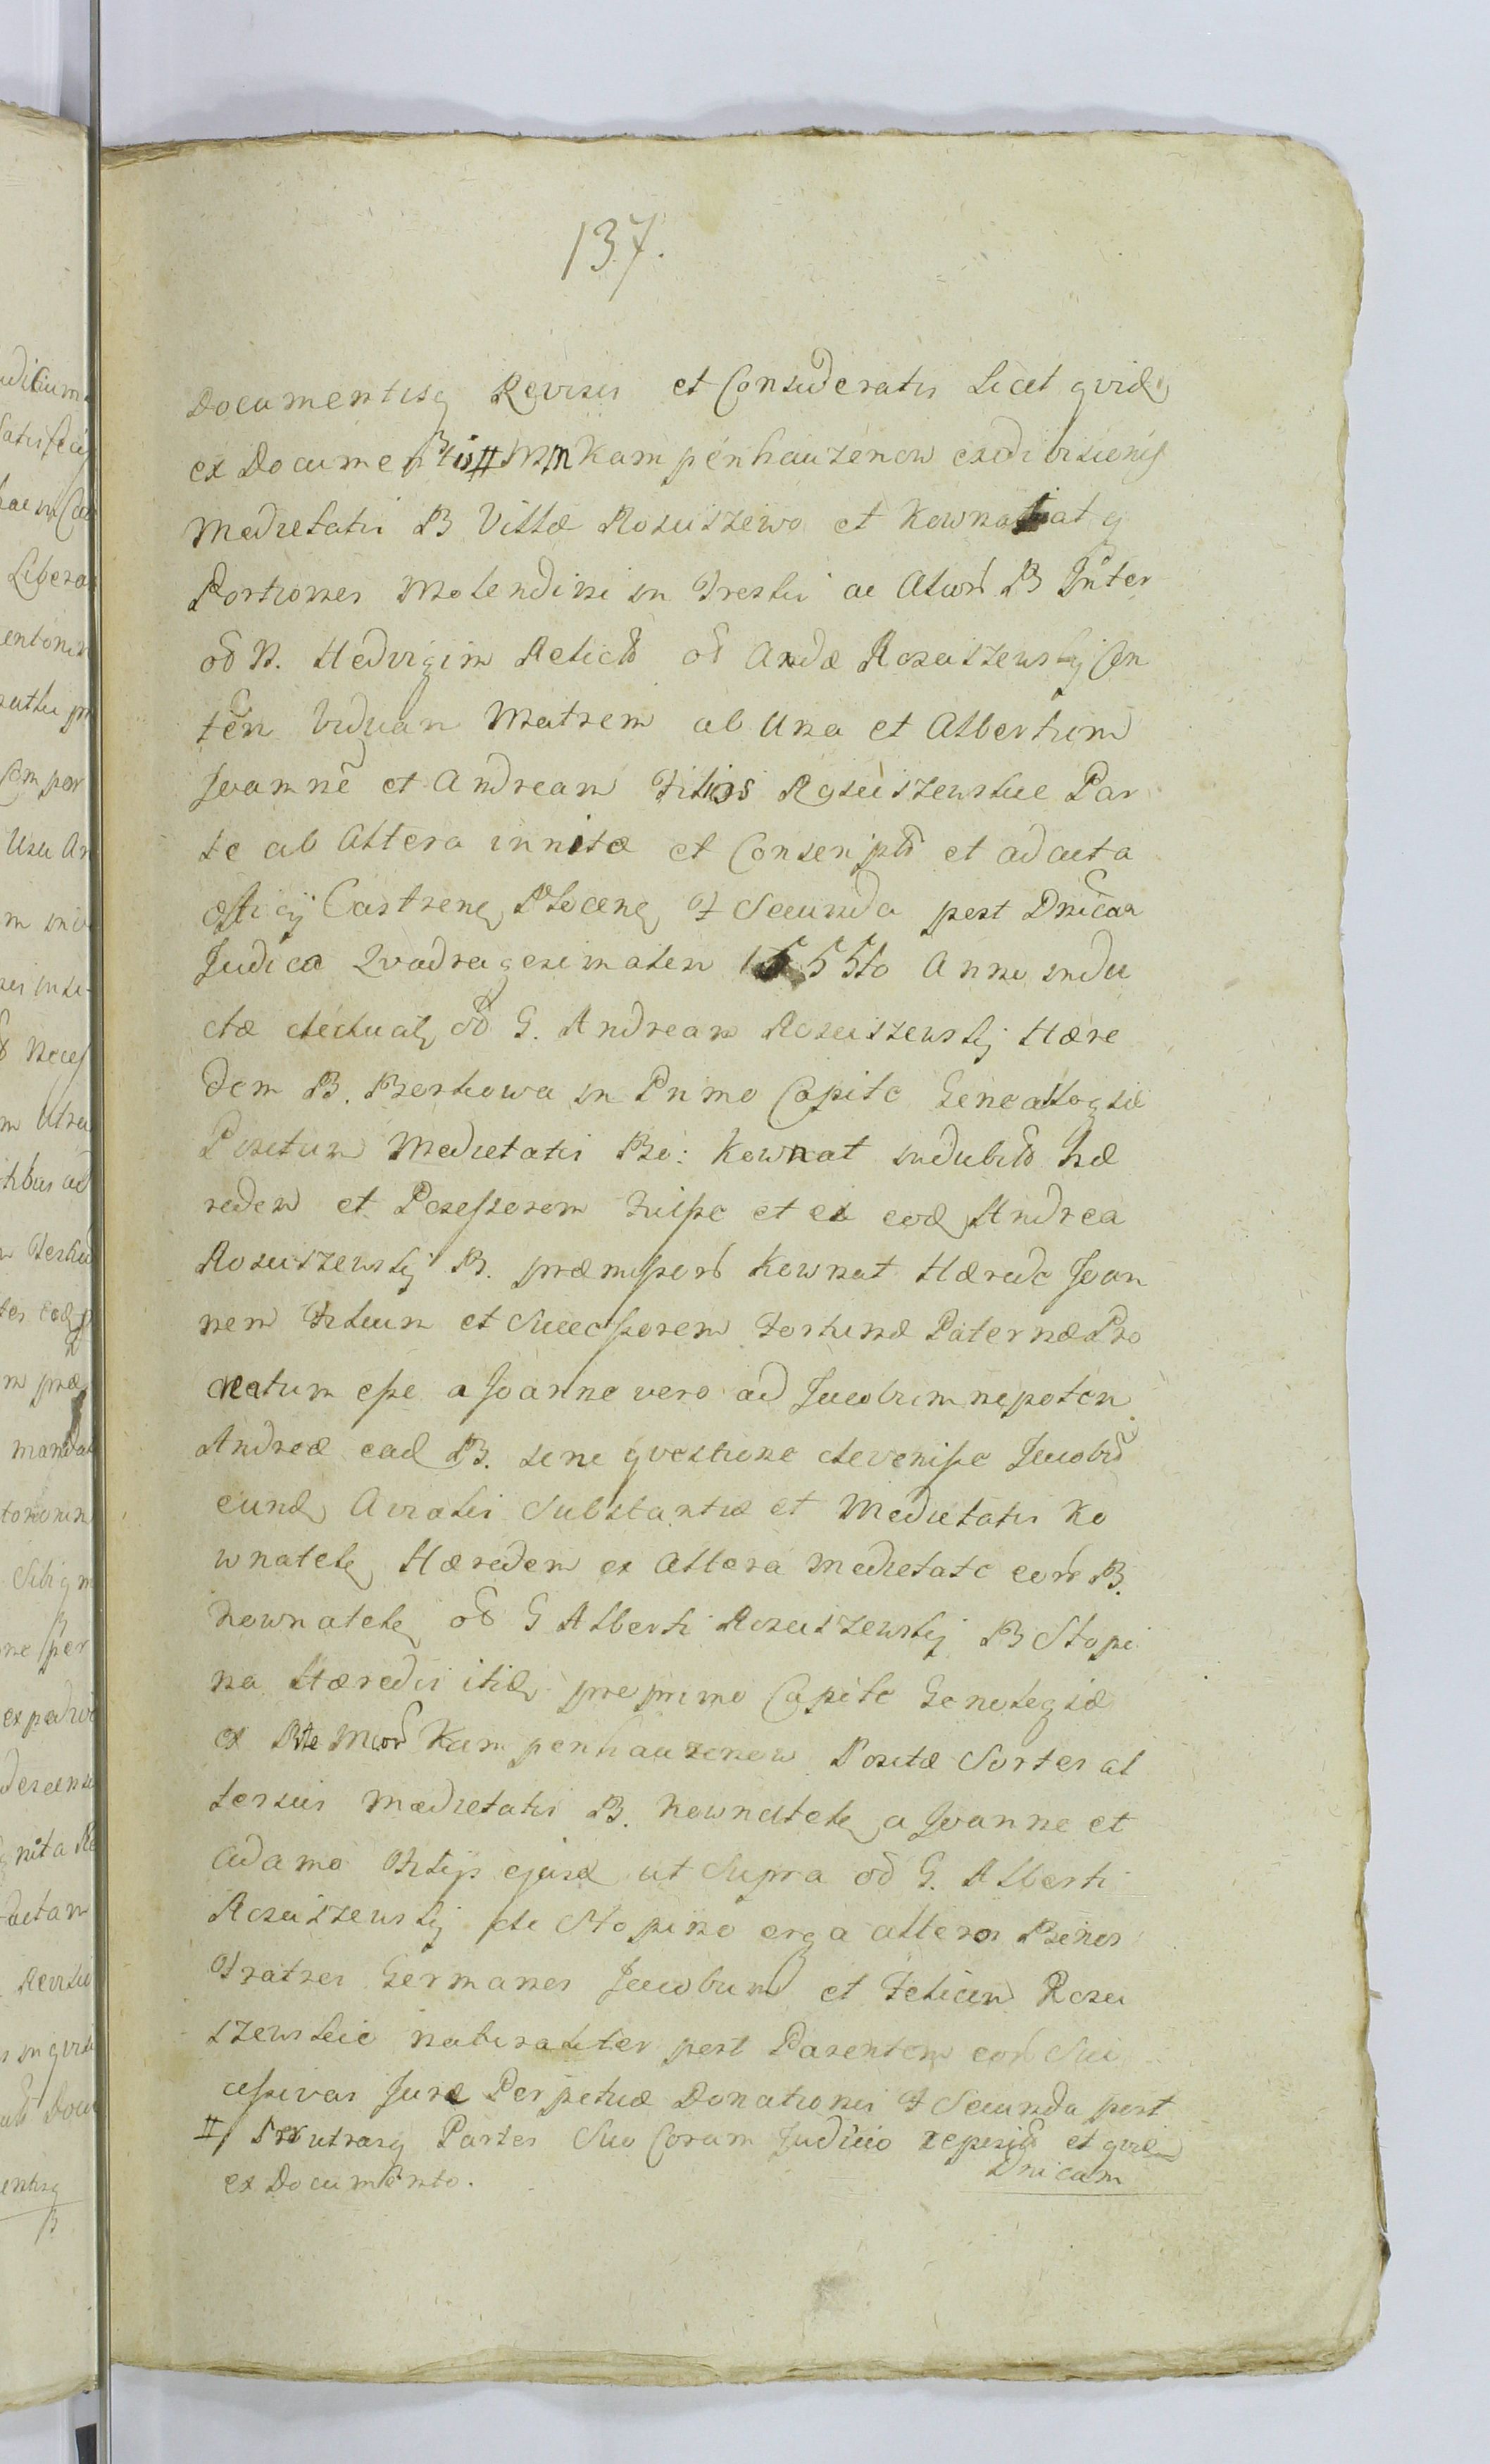 137.
Documentisq Revisis et Consideratis Licet qvidē
ex Documentis # MM Kampenhauzenow ex divisionis
Medietatis B Villæ Rosciszewo et Kownat q
Portiones Molendini in Trestki ac Aliorū B Inter
od N. Hedvigim Relictā od Andæ Rosciszewskij Con
tēn Viduan Matrem ab Una et Albertum
Joannē et Andream Filios Rosciszewskie Par
te ab Altera innitæ et Conscriptā et ad acta
Officij Castrenę Płocenę F Secunda post Dnicam
Judica Qvadragesimalem 1555to Anno indu
ctæ deduat od G. Andream Rosciszewskij Hære
dem B. Borkowa in Primo Capite Genealogiæ
Positum Medietatis Bo: Kownat indubitō Hæ
redem et Posessorem fuisse et ex eod Andrea
Rosciszewskij B. præmissorū Kownat Hærede Joan
nem Filium et Successorem Fortunæ Paternæ Pro
creatum esse a Joanne vero ad Jacobum nepotem
Andreæ ead B. sine qvestione devenisse Jacobū
eund Avialis Substantiæ et Medietatis Ko
wnatek Hæredem ex Altera Medietate eorū B.
Kownatek od G Alberti Rosciszewskij B Stopi
na Hæredis itid pro primo Capite Genelogiæ
ex Rte Morū Kampenhauzenow Positæ Sortes al
terius Medietatis B. Kownatek a Joanne et
Adamo Filijs ejusd ut Supra od G. Alberti
Rosciszewskij de Stopino erga alteros Binos
Fratres Germanos Jacobum et Felicem Rosci
szewskie naturaliter post Parentem eorū Suc
cessivas Jure Perpetuæ Donationis F Secunda post
Dnicam
# Per utrasq Partes Suo Coram Judicio repositā et qvidem
ex Documento.